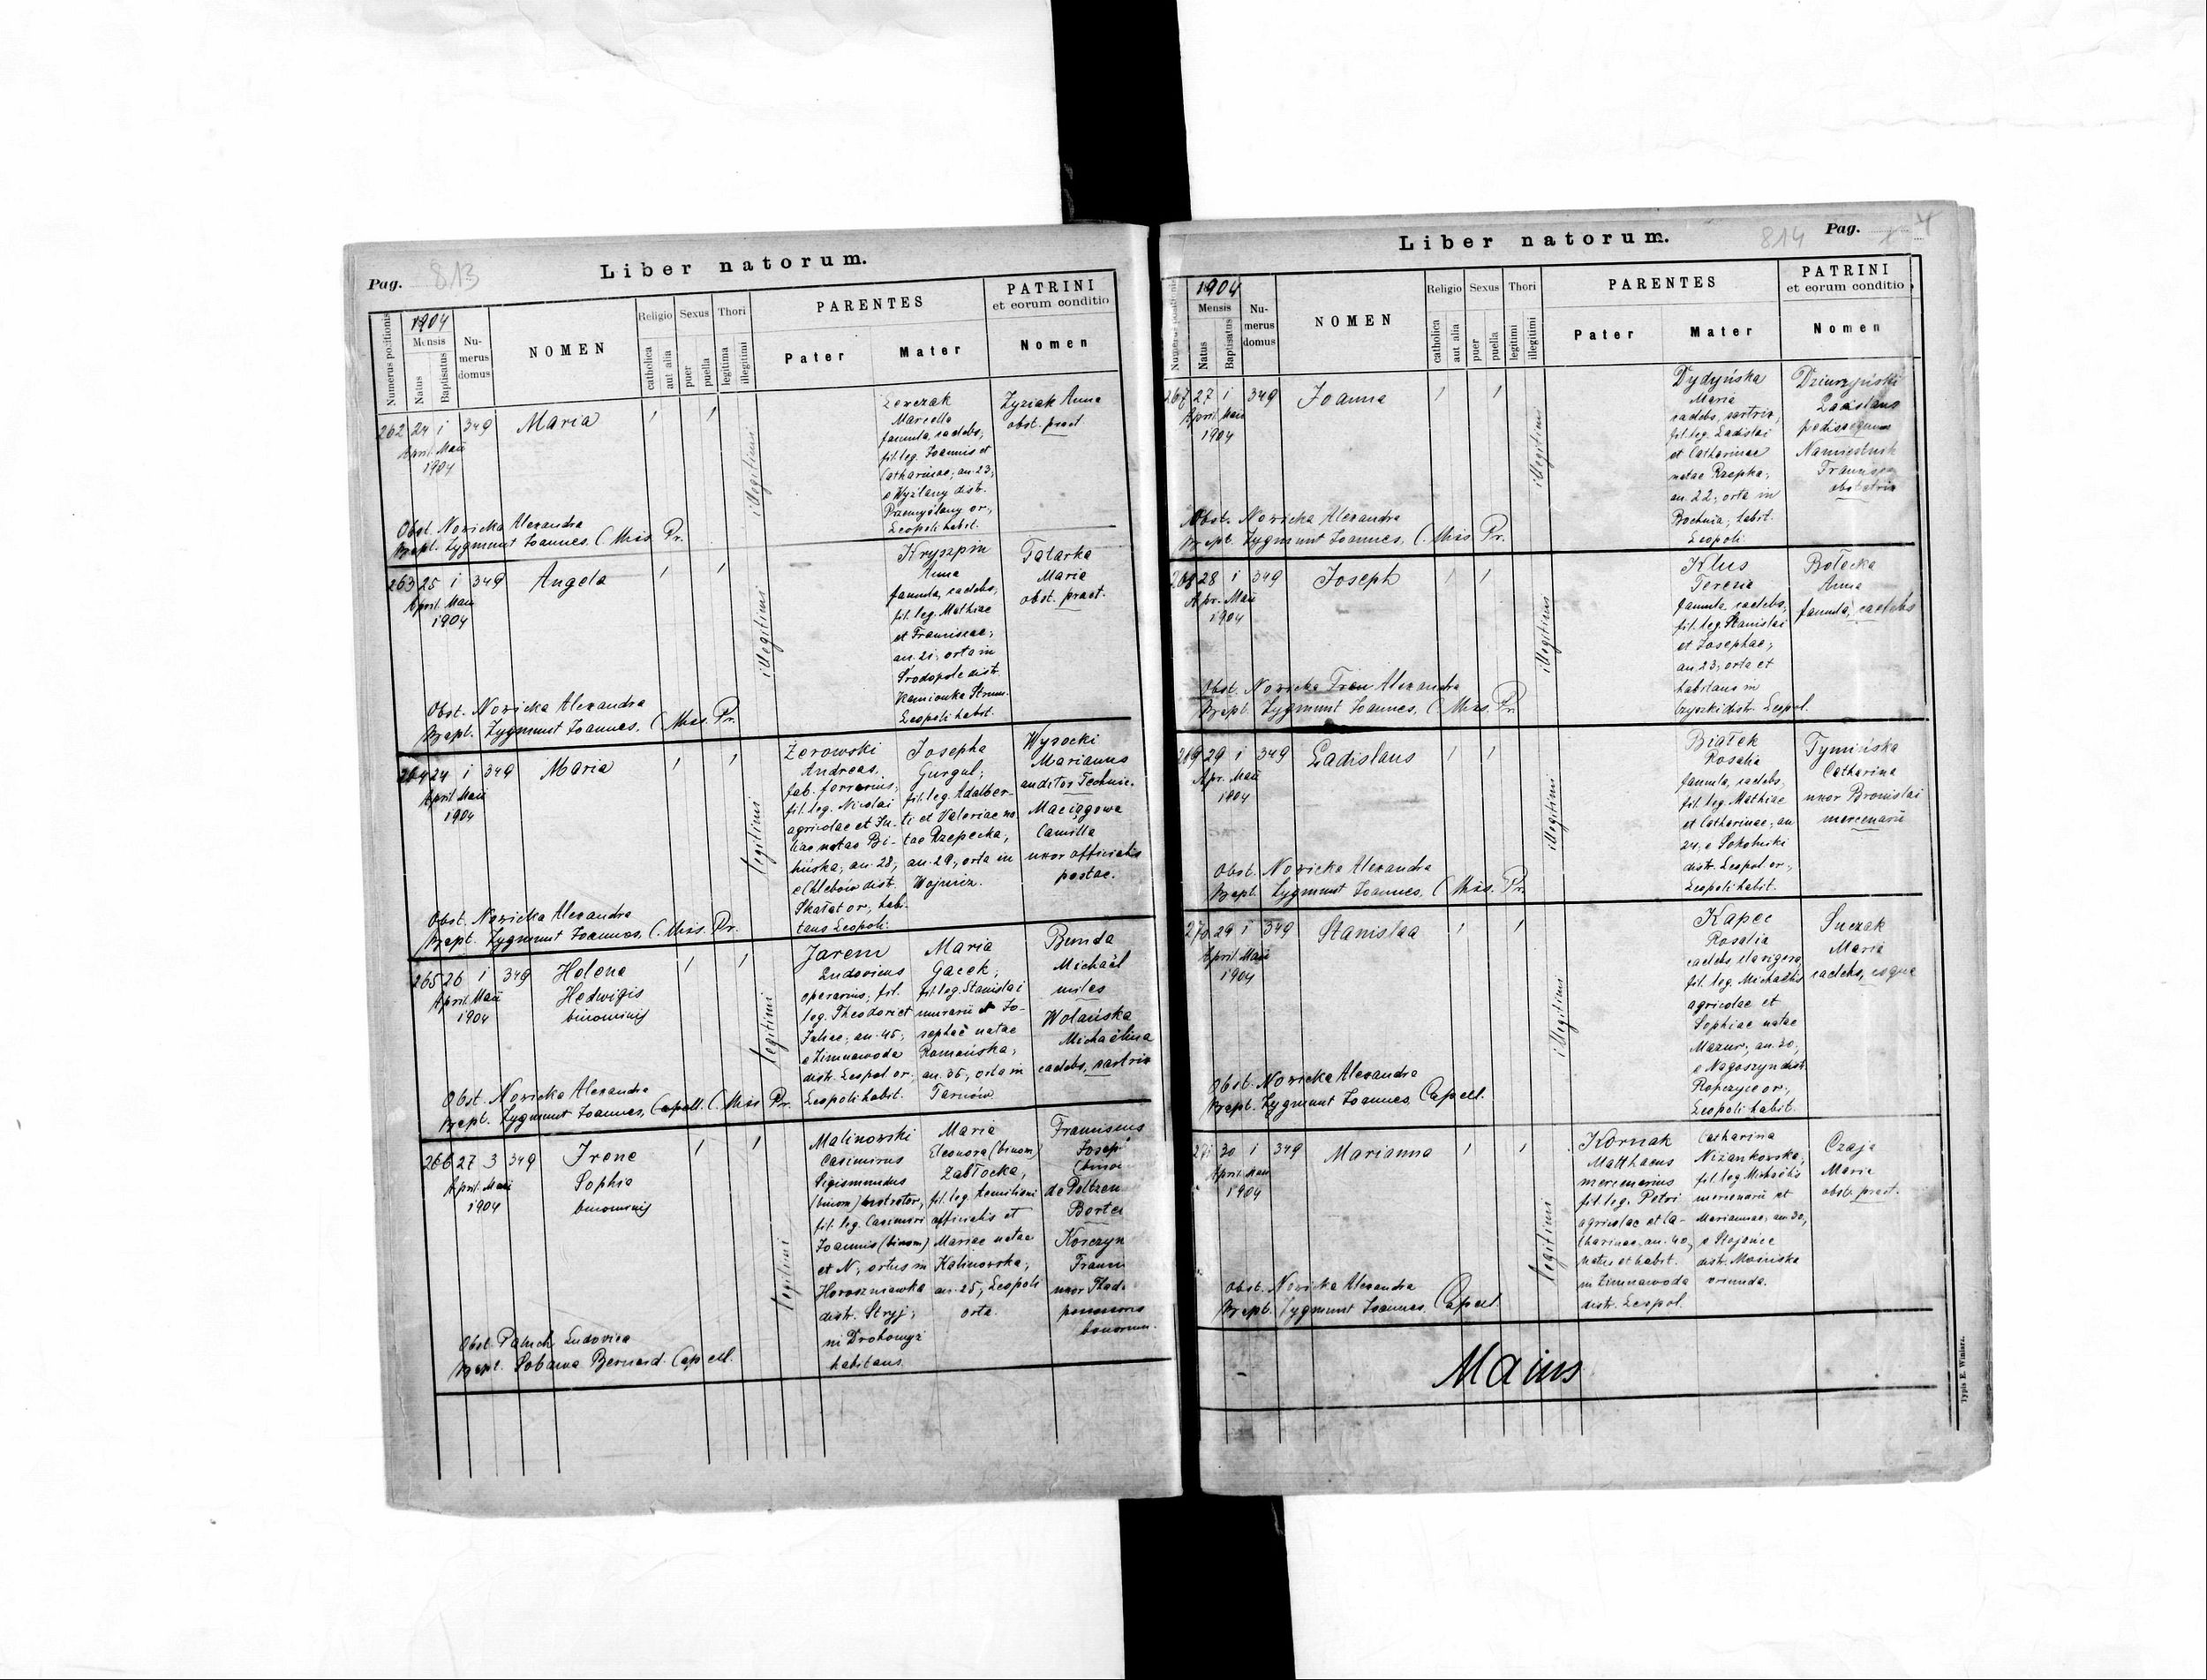 Pag. 813
Liber natorum.
Numerus positionis
1904
Mensis
Natus
Baptisatus
Numerus domus
NOMEN
Religio
catholica
aut alia
Sexus
puer
puella
Thori
legitima
illegitimi
PARENTES
Pater
Mater
PATRINI
et eorum conditio
Nomen
262 24 1 349 Maria 1 1
April. Maii
1904
illegitimi
Marcella
famula, caelebs,
fil. leg. Joannis et
Catharinae, an. 23,
e Wyżlany distr.
Przemyślany or.,
Leopoli habit.
Zyziak Anna
obst. pract
Obst. Nowicka Alexandra
Bapt. Zygmunt Joannes, C. Miss. Pr.
263 25 1 349 Angela 1 1
April. Maii
1904
illegitimi
Kryszpin
Anna
famula, caelebs,
fil. leg. Mathiae
et Franciscae,
an. 21, orta in
Środopole distr.
Kamionka Strum.
Leopoli habit.
Tatarka
Maria
obst. pract.
Obst. Nowicka Alexandra
Bapt. Zygmunt Joannes, C. Miss. Pr.
264 24 1 349 Maria 1 1
April. Maii
1904
legitimi
Żerowski
Andreas,
fab. ferrarius,
fil. leg. Nicolai
agricolae et Ju-
liae natae Bi-
lińska, an. 28,
e Chlebów distr.
Skałat or., habi-
tans Leopoli.
Josepha
Gurgul,
fil. leg. Adalber-
ti et Valeriae na-
tae Rzepecka,
an. 29, orta in
Wojnicz.
Wysocki
Marianus
auditor Technic.
Maciągowa
Camilla
uxor officialis
postae.
Obst. Nowicka Alexandra
Bapt. Zygmunt Joannes, C. Miss. Pr.
265 26 1 349 Helena
April. Maii
1904
Hedwigis
binominis
1 1
legitimi
Jarem
Ludovicus
operarius, fil.
leg. Theodori et
Juliae, an. 45,
e Zimnawoda
distr. Leopol or.,
Leopoli habit.
Maria
Gacek,
fil. leg. Stanislai
murarii et Jo-
sephae natae
Romańska,
an. 35, orta in
Tarnów
Bunda
Michaël
miles
Wolańska
Michaëlina
caelebs, sartrix
Obst. Nowicka Alexandra
Bapt. Zygmunt Joannes, Capell. C. Miss. Pr.
266 27 3 349 Irene
April. Maii
1904
Sophia
binominis
1 1
legitimi
Malinowski
Casimirus
Sigismundus
(binom)
fil. leg. Casimiri
Joannis (binom)
et N., ortus in
Horoszniawka
distr. Stryj,
in Drohomyż
habitans
Maria
Eleonora (binom)
Zabłocka,
fil. leg. Aemiliani
officialis et
Mariae natae
Kalinowska,
an. 25, Leopoli
orta.
Franciscus
Joseph
de Peltzen
Korczyn
uxor
possessoris
bonorum.
Obst. Paluch Ludovica
Bapt. Sobawa Bernard. Capell.
Liber natorum.
814 Pag.
1904
Mensis
Natus
Baptisatus
Numerus domus
NOMEN
Religio
catholica
aut alia
Sexus
puer
puella
Thori
legitimi
illegitimi
PARENTES
Pater
Mater
PATRINI
et eorum conditio
Nomen
267 27 1 349 Joanna 1 1
April. Maii
1904
illegitimi
Dydyńska
Maria
caelebs, sartrix,
fil. leg. Ladislai
et Catharinae
natae Rzepka,
an. 22, orta in
Bochnia, habit.
Leopoli
Dziurzyński
Ladislaus
pedissequus
Namiestnik
obstetrix
Obst. Nowicka Alexandra
Bapt. Zygmunt Joannes, C. Miss. Pr.
268 28 1 349 Joseph 1 1
Apr. Maii
1904
illegitimi
Klus
Teresia
famula, caelebs,
fil. leg. Stanislai
et Josephae,
an. 23, orta et
habitans in
Czyszki distr. Leopol.
Botacka
Anna
famula, caelebs
Obst. Nowicka Alexandra
Bapt. Zygmunt Joannes, C. Miss. Pr.
269 29 1 349 Ladislaus 1 1
Apr. Maii
1904
illegitimi
Białek
Rosalia
famula, caelebs,
fil. leg. Mathiae
et Catharinae, an
24, e Sokolniki
distr. Leopol or.,
Leopoli habit.
Tymińska
Catharina
uxor Bronislai
mercenarii
Obst. Nowicka Alexandra
Bapt. Zygmunt Joannes, C. Miss. Pr.
270 29 1 349 Stanislaa 1 1
April. Maii
1904
illegitimi
Kapec
Rosalia
caelebs, clavigera,
fil. leg. Michaëlis
agricolae et
Sophiae natae
Mazur, an. 30,
e Nagoszyn distr.
Ropczyce or.,
Leopoli habit.
Suczak
Maria
caelebs, coqua
Obst. Nowicka Alexandra
Bapt. Zygmunt Joannes, Capell.
271 30 1 349 Marianna 1 1
April. Maii
1904
legitimi
Kornak
Matthaeus
mercenarius
fil. leg. Petri
agricolae et Ca-
tharinae, an. 40,
natus et habit.
in Zimnawoda
distr. Leopol.
Catharina
Niżankowska,
fil. leg. Michaëlis
mercenarii et
Mariannae, an. 30,
e Stojańce
distr. Mościska
oriunda.
Czaja
Maria
obst. pract.
Obst. Nowicka Alexandra
Bapt. Zygmunt Joannes, Capell.
Maius
Typis E. Winiarz.